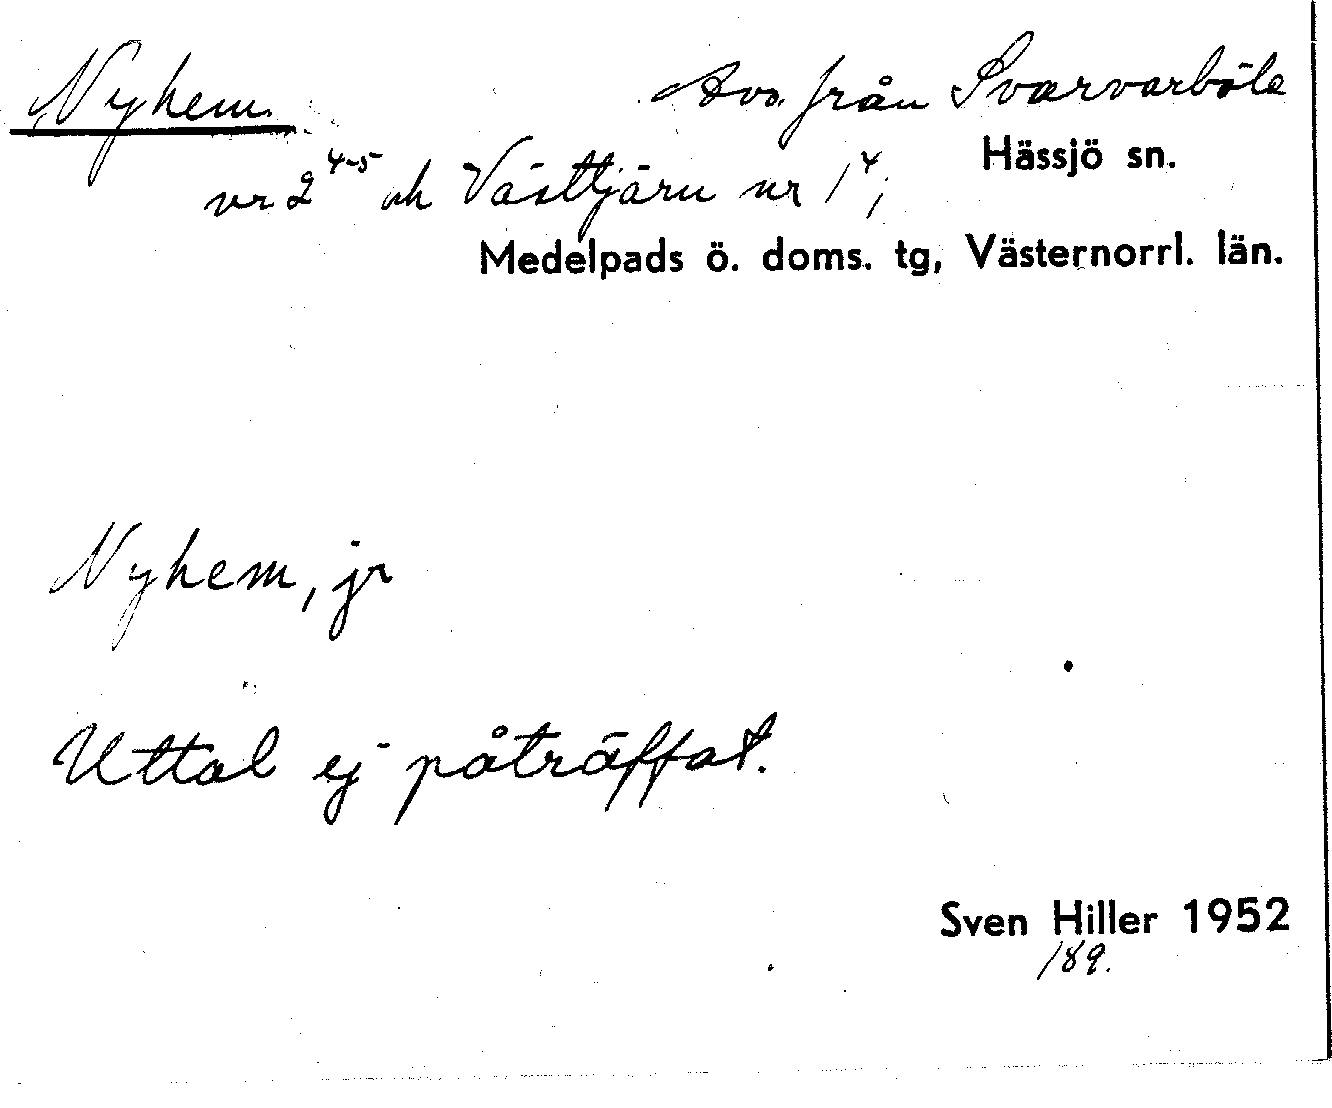 Nyhem. Avs. från Svarvarböle
Hässjö sn.
nr 2⁴⁻⁵ och Västtjärn nr 1⁴;
Medelpads ö. doms. tg, Västernorrl. län.
Nyhem, jr
Uttal ej påträffat.
Sven Hiller 1952
189.